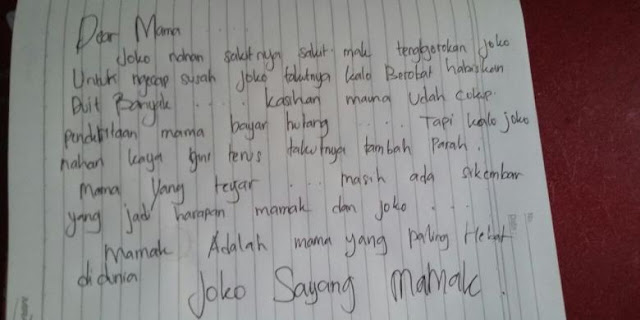 Dear Mama
Joko nahan sakitnya sakit mak tenggorokan joko
Untuk ngecap susah joko takutnya kalo Berobat habiskan
Duit Banyak .... kasihan mama udah cukup
penderitaan mama bayar hutang .... Tapi kalo joko
nahan kaya gini terus takutnya tambah parah.
mama yang tegar ... masih ada sikembar
yang jadi harapan mamak dan joko ...
Mamak Adalah mama yang paling Hebat
didunia
Joko Sayang Mamak!